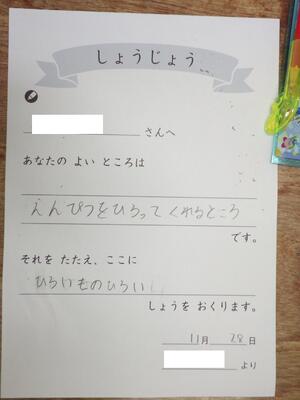 しょうじょう
さんへ
あなたの よい ところは
えんぴつをひろってくれるところ
です。
それを たたえ、ここに
ひろいものひろい
しょうを おくります。
11月 28日
より